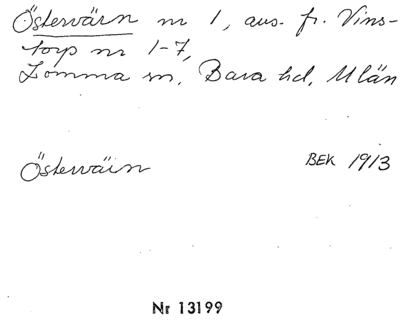 Östervärn nr 1, avs. fr. Vins-
torp nr 1-7,
Lomma sn, Bara hd, M län
Östervärn
BEK 1913
Nr 13199